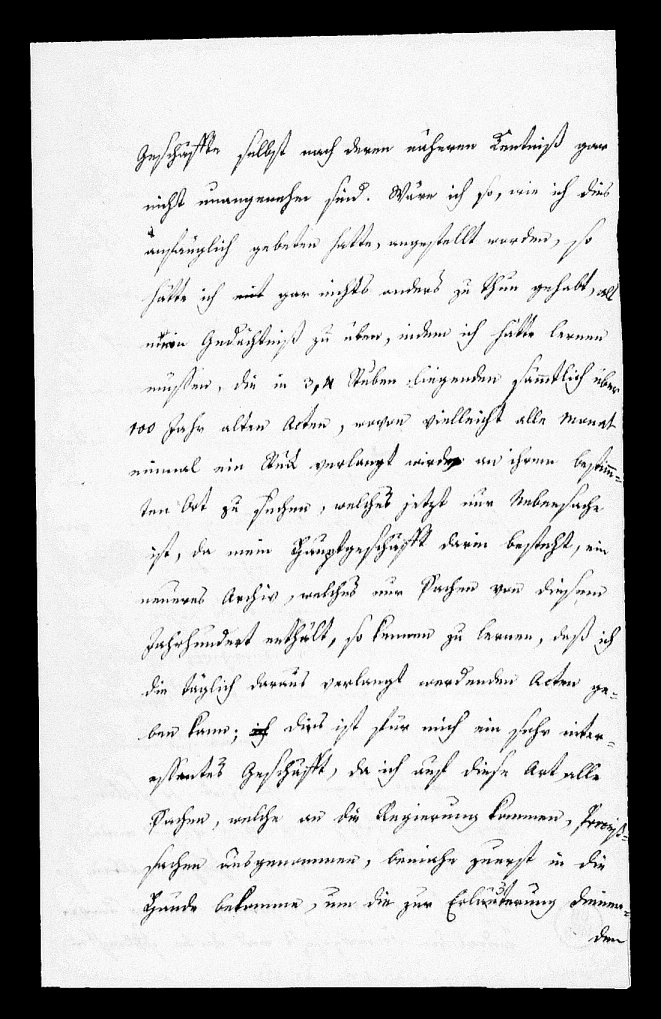 Geschäffte selbst nach deren näheren Kentniß gar
nicht unangenehm sind. Wäre ich so, wie ich dies
anfänglich gebeten hatte, angestellt worden, so
hätte ich mit gar nichts anders zu thun gehabt, als
mein Gedächtniß zu üben, indem ich hätte lernen
müssen, die in 3, 4 Stuben liegenden sämtlich über
100 Jahr alten Acten, wovon vielleicht alle Monat
einmal ein Stück verlangt wird an ihrem bestimm=
ten Ort zu suchen, welches jetzt nur Nebensache
ist, da mein Hauptgeschäfft darin besteht, ein
neueres Archiv, welches nur Sachen von diesem
Jahrhundert enthält, so kennen zu lernen, daß ich
die täglich daraus verlangt werdenden Acten ge=
ben kann; ich dies ist für mich ein sehr inter=
essantes Geschäfft, da ich auf diese Art alle
Sachen, welche an die Regierung kommen, Proceß=
sachen ausgenommen, beinahe zuerst in die
Hände bekomme, um die zur Erläuterung dienen=
den